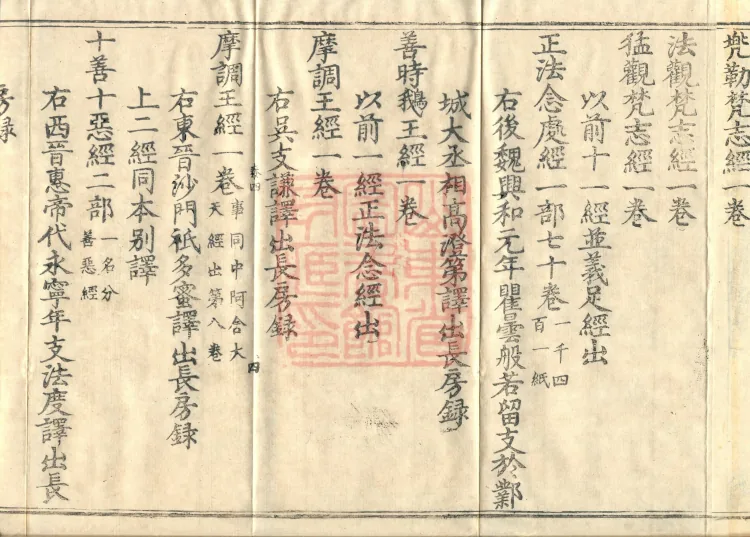 兠勒梵志經一卷
法觀梵志經一卷
猛觀梵志經一卷
以前十一經並義足經出
正法念處經一部七十卷一千四百一紙
右後魏興和元年瞿曇般若留支於鄴
城大丞相高澄第譯出長房録
善時鵝王經一卷
以前一經正法念經出
摩調王經一卷
右吳支謙譯出長房録
摩調王經一卷事同中阿含大天經出第八卷
右東晉沙門祇多蜜譯出長房録
上二經同本別譯
十善十惡經二部一名分善惡經
右西晉惠帝代永寧年支法度譯出長
房録